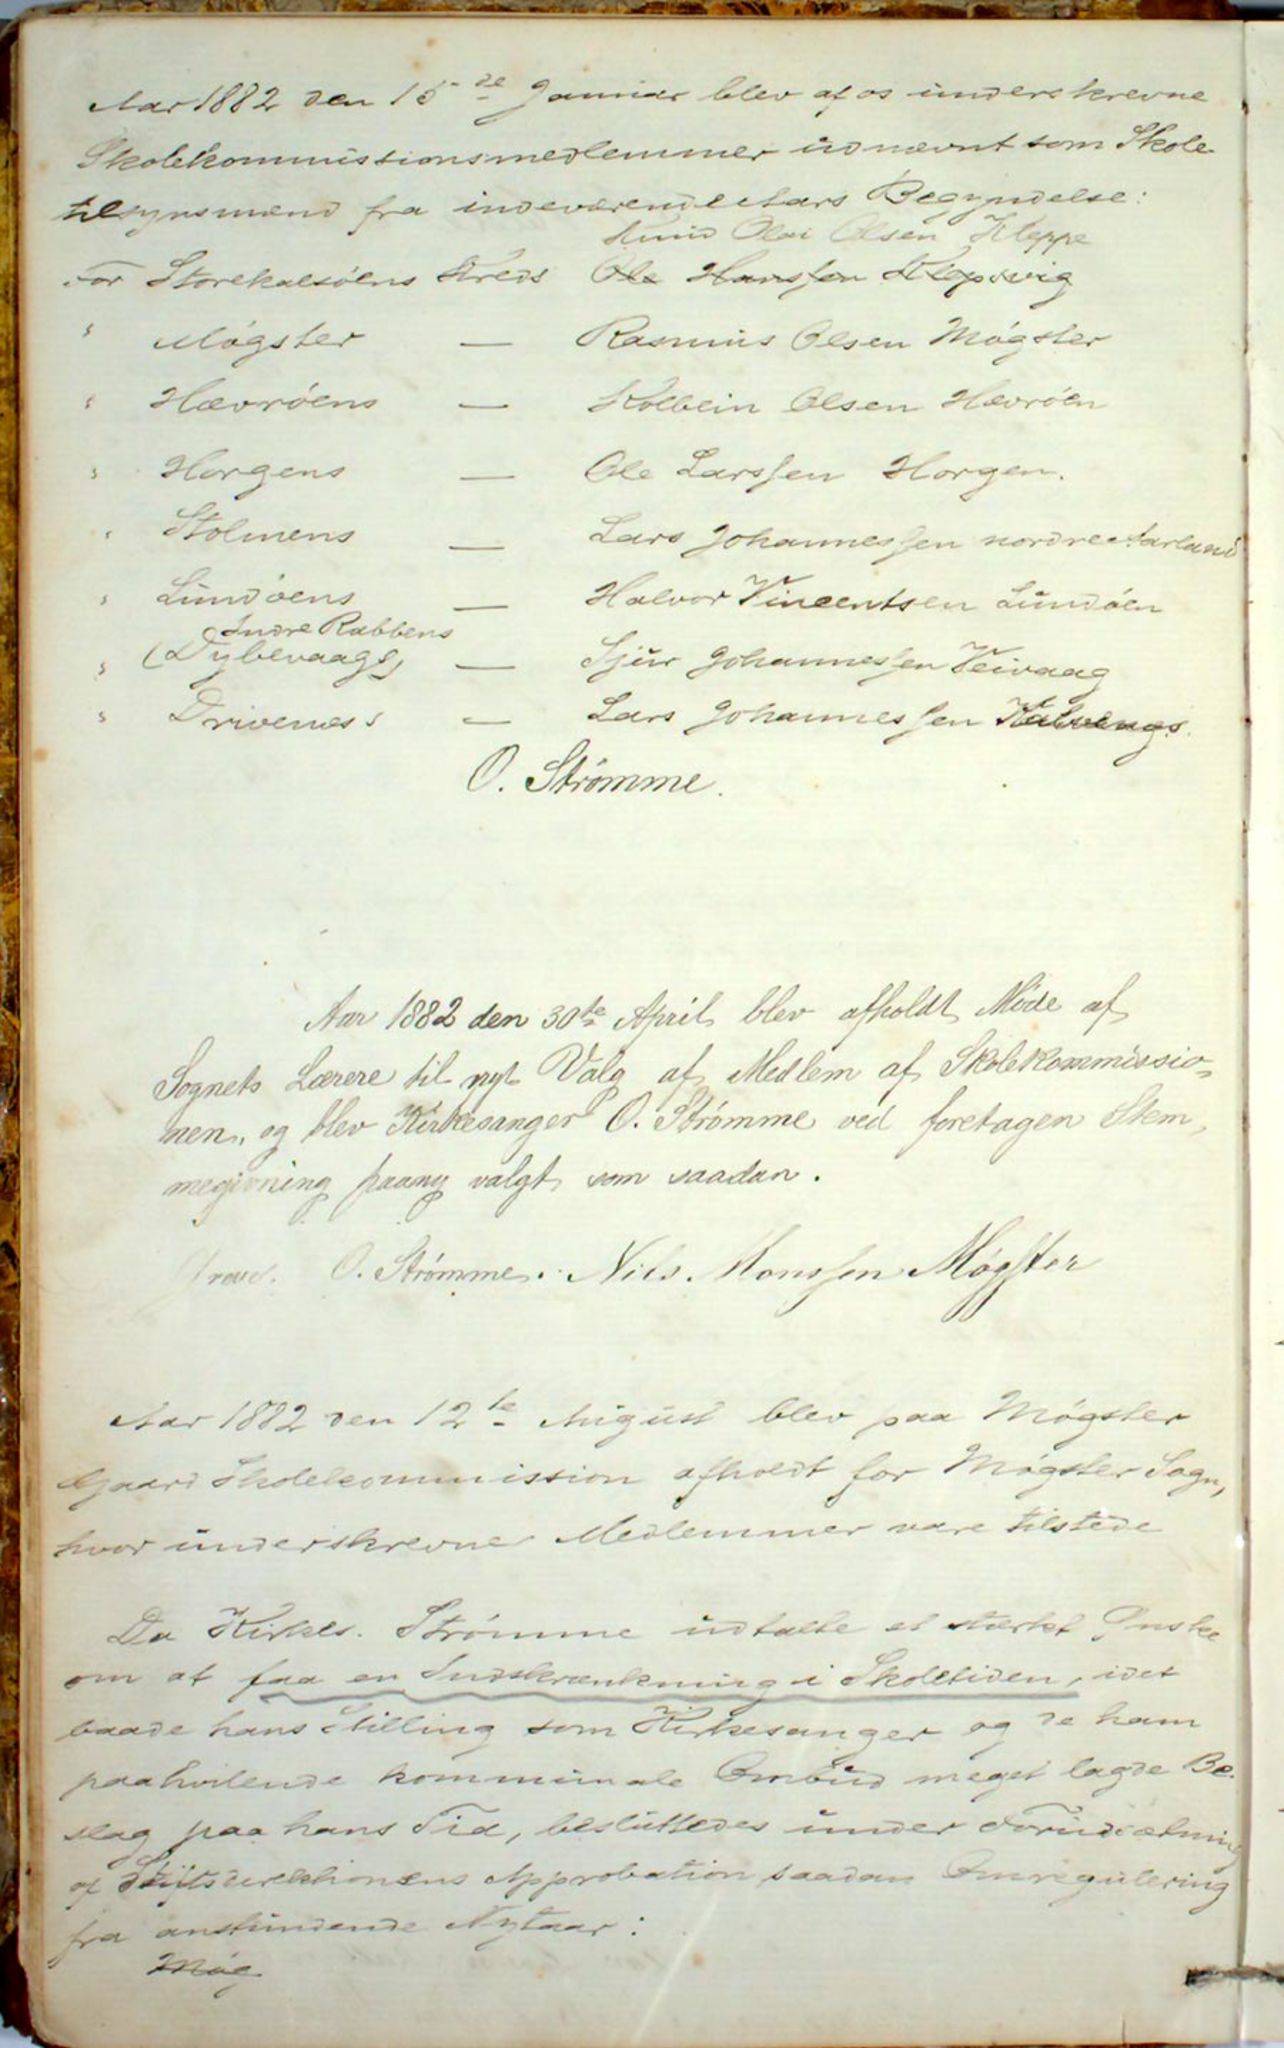 Aar 1882 den 15de Januar blev af os underskrevne
Skolekommissionsmedlemmer udnævnt som Skole-
tilsynsmænd fra indeværende Aars Begyndelse:
Knud Olai Olsen Kleppe
For Storekalsöens Kreds Ole Hanssen Klepsvig
" Møgster — Rasmus Olsen Møgster
" Hævröens — Kolbein Olsen Hævröen
" Horgens — Ole Larssen Horgen.
" Stolmens — Lars Johannessen nordre Aarland
" Lundöens — Halvor Vincentsen Lundöen
Indre Rabbens
" (Dybevaags) — Sjur Johannessen Veivaag
" Drivenes's — Lars Johannessen
O. Strömme.
Aar 1882 den 30te April blev afholdt Möde af
Sognets Lærere til nyt Valg af Medlem af Skolekommissio-
nen, og blev Kirkesanger O. Strömme ved foretagen Stem-
megivning paany valgt som saadan.
O. Strömme. Nils. Monssen Møgster
Aar 1882 den 12te August blev paa Møgster
Gaard Skolekommission afholdt for Møgster Sogn,
hvor underskrevne Medlemmer vare tilstede
Da Kirkes. Strømme udtalte et stærkt Ønske
om at faa en Indskrænkning i Skoletiden, idet
baade hans Stilling som Kirkesanger og de ham
paahvilende kommunale Ombud meget lagde Be-
slag paa hans Tid, besluttedes under Forudsætning
af Stiftsdirektionens Approbation saadan Omregulering
fra anstundende Nytaar:
Møg